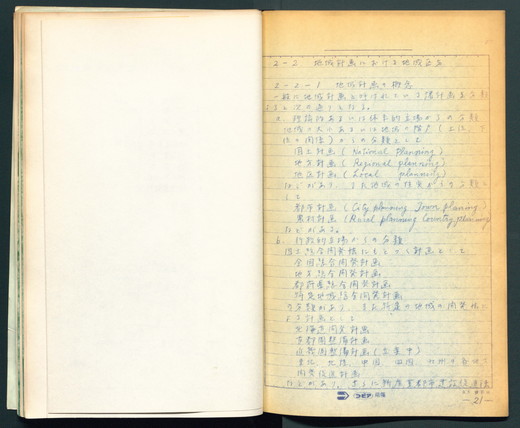 2-2 地域計画における地域区分
2-2-1 地域計画の概念
一般に地域計画と呼ばれている諸計画を分類
すると次の通りとなる。
a.
地域の大小あるいは地域の階
の関係)からの分類として
国土計画 (National planning)
地方計画 (Regional planning)
地区計画 (Local planning)
などがあり、また地域の性質から分類し
て
都市計画 (City planning Town planning)
農村計画 (Rural planning Country planning)
などがある。
b. 行政的立場からの分類
国土総合開発法にもとづく計画として
全国総合開発計画
地方総合開発計画
都府県総合開発計画
特定地域総合開発計画
の分類があり、また特定の地域の開発法に
よる計画として
北海道開発計画
首都圏整備計画
近畿圏整備計画 (立案中)
東北、北陸、中国、四国、九州の各地方
開発促進計画
などがあり、さらに新産業都市建設促進法
コピア
-21-